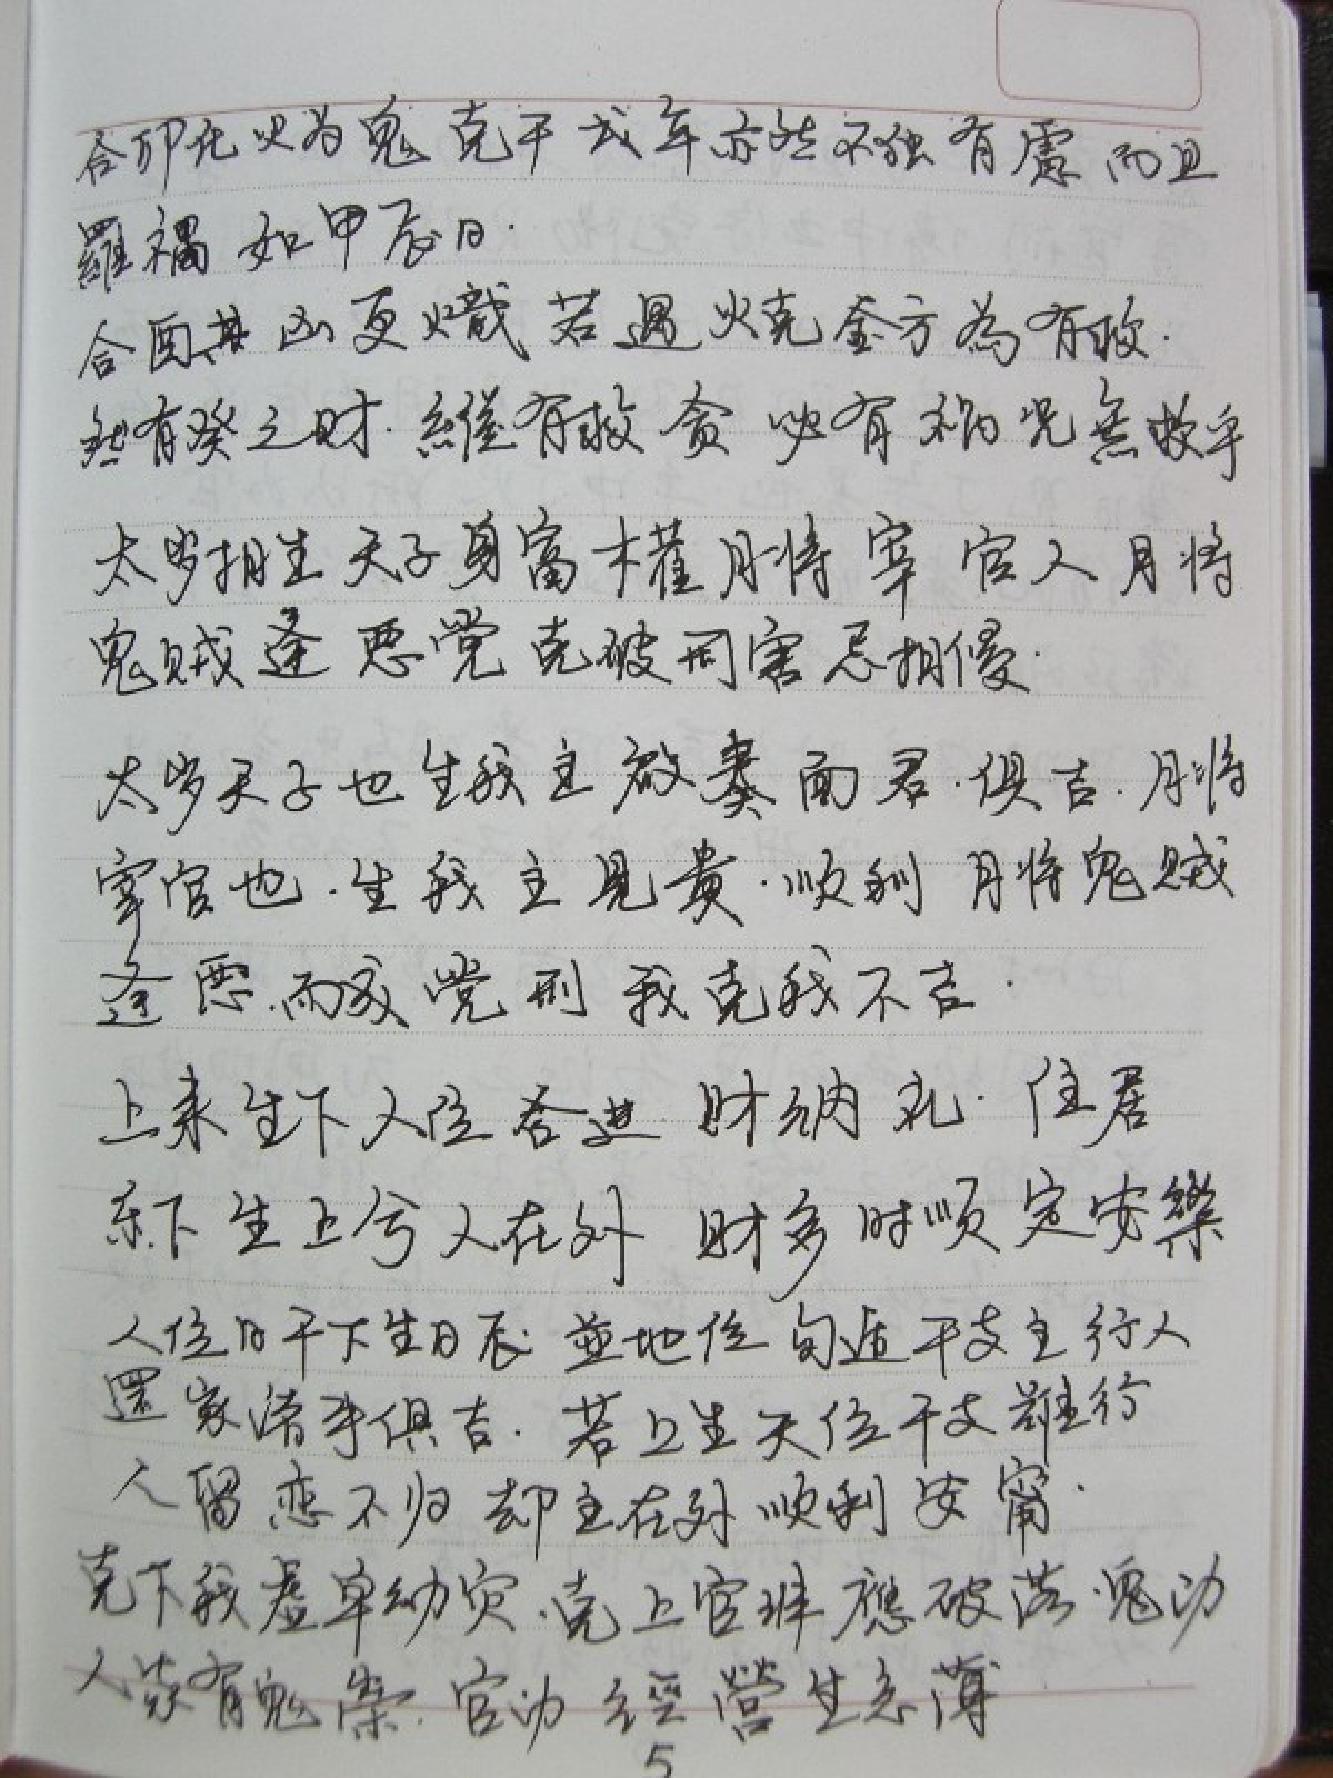 合卯化火为鬼克干戌年亦然不独有處而且
羅禍如甲辰日.
合酉其凶更熾若遇火克金方為有救.
然有癸之財.縱有救贪必有禍况無救乎
太岁相生天子身富木權月将宰官人月将
鬼贼逢恶党克破刑害忌相侵.
太岁天子也生我主啟奏面君.俱吉.月将
宰官也.生我主見貴.顺利月将鬼贼
逢恶.而成党刑我克我不吉.
上来生下人位吝進財纳礼.住居
东下生上兮人在外財多时顺定安樂
人位日干下生日辰並地位旬遁干支主行人
還家諸事俱吉.若上生天位干支難行
人留恋不归却主在外顺利安甯.
克下我虚卑幼灾.克上官班應破落.鬼动
人宅有鬼祟.官动经营生意薄
5